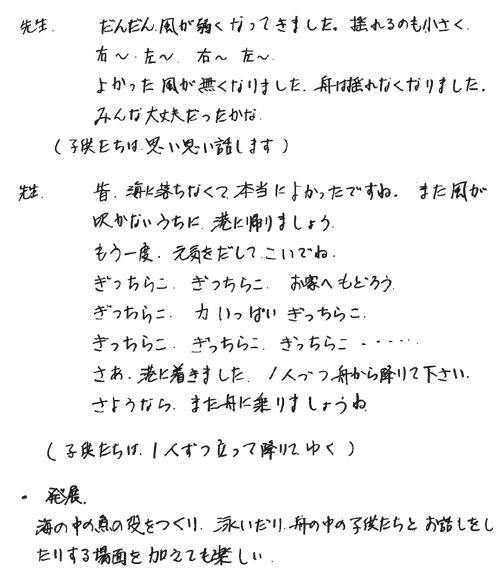 先生. だんだん風が弱くなってきました。揺れるのも小さく.
右〜. 左〜. 右〜 左〜.
よかった 風が無くなりました. 舟は揺れなくなりました.
みんな大丈夫だったかな.
(子供たちは. 思い思い話します)
先生. 皆. 海に落ちなくて. 本当によかったですね. また風が
吹かないうちに. 港に帰りましょう.
もう一度. 元気をだして. こいでね.
ぎっちらこ. ぎっちらこ. お家へもどろう.
ぎっちらこ. 力いっぱい ぎっちらこ.
ぎっちらこ. ぎっちらこ. ぎっちらこ ・・・・・・
さあ. 港に着きました. 1人づつ舟から降りて下さい.
さようなら. また舟に乗りましょうね.
(子供たちは. 1人ずつ立って降りて. ゆく)
・ 発展.
海の中の魚の役をつくり. 泳いだり. 舟の中の子供たちと お話しをし
たりする場面を加えても楽しい.